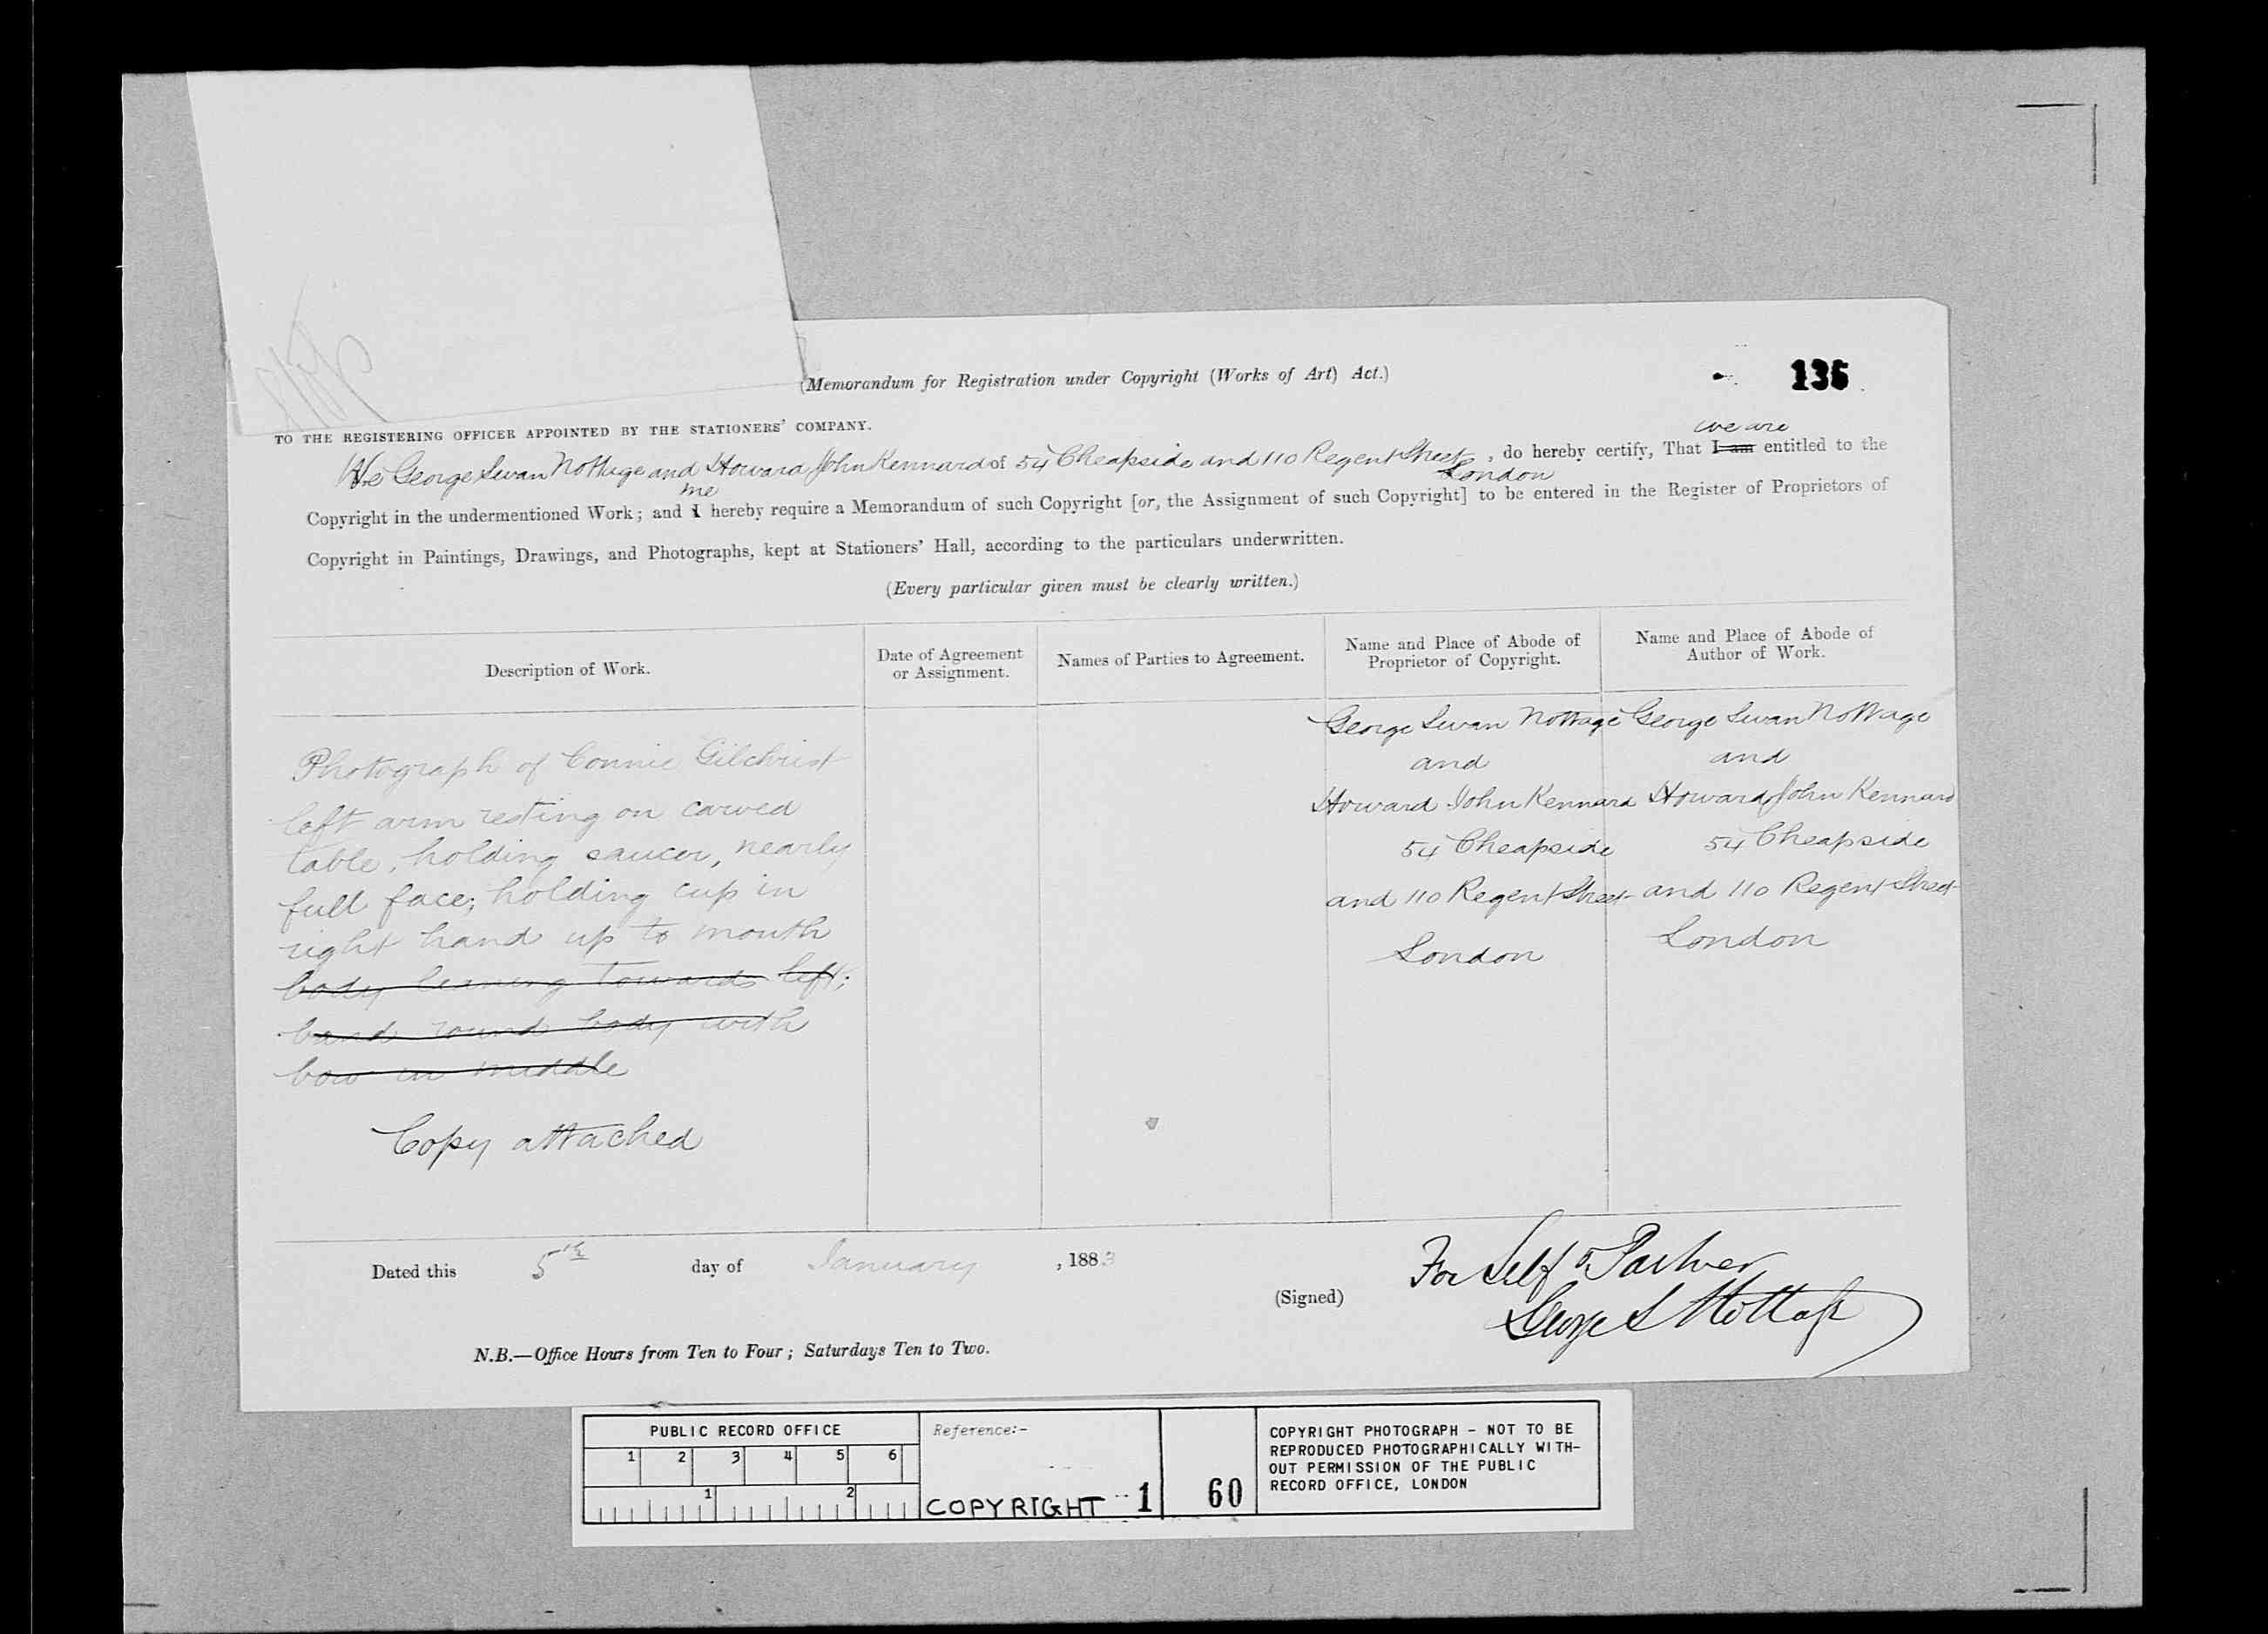 (Memorandum for Registration under Copyright (Works of Art) Act.)
136
TO THE REGISTERING OFFICER APPOINTED BY THE STATIONERS' COMPANY.
we are
We George Swan Nottage and Howard John Kennard of 54 Cheapside and 110 Regent Street, do hereby certify, That I am entitled to the
London
we
Copyright in the undermentioned Work; and I hereby require a Memorandum of such Copyright [or, the Assignment of such Copyright] to be entered in the Register of Proprietors of
Copyright in Paintings, Drawings, and Photographs, kept at Stationers' Hall, according to the particulars underwritten.
(Every particular given must be clearly written.)
Description of Work.
Date of Agreement
or Assignment.
Names of Parties to Agreement.
Name and Place of Abode of
Proprietor of Copyright.
Name and Place of Abode of
Author of Work.
Photograph of Connie Gilchrist
left arm resting on carved
table, holding saucer, nearly
full face; holding cup in
right hand up to mouth
body leaning towards left;
band round body with
bow in middle
Copy attached
George Swan Nottage
and
Howard John Kennard
54 Cheapside
and 110 Regent Street
London
George Swan Nottage
and
Howard John Kennard
54 Cheapside
and 110 Regent Street
London
Dated this 5th day of January, 1883
(Signed)
For Self & Partner
George S Nottage
N.B.—Office Hours from Ten to Four; Saturdays Ten to Two.
PUBLIC RECORD OFFICE
1 2 3 4 5 6
1 2
Reference:-
COPYRIGHT 1
60
COPYRIGHT PHOTOGRAPH - NOT TO BE
REPRODUCED PHOTOGRAPHICALLY WITH-
OUT PERMISSION OF THE PUBLIC
RECORD OFFICE, LONDON